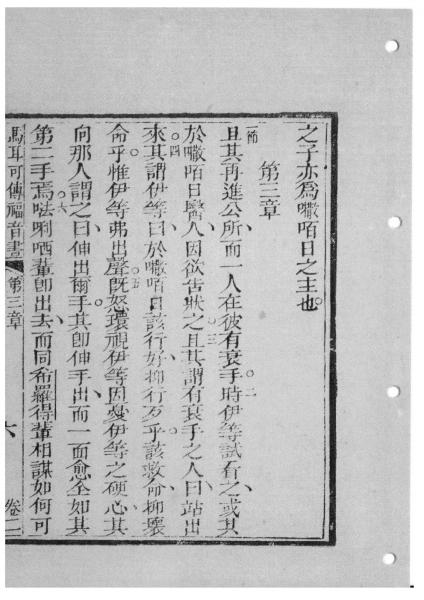 之子亦為咟日之主也
第三章
一節 且其再進公所而一人在彼有衰手 二 時伊等試看之或其
於咟日醫人因欲告狀之 三 且其謂有衰手之人曰站出
來 四 其謂伊等曰於咟日該行好抑行歹乎該救命抑壞
命乎惟伊等弗出聲 五 既怒環視伊等因憂伊等之硬心其
向那人謂之曰伸出爾手其卽伸手出而一面愈全如其
第二手焉 六 唎哂輩卽出去而同希羅得輩相謀如何可
馬耳可傳福音書 第三章 六 卷二